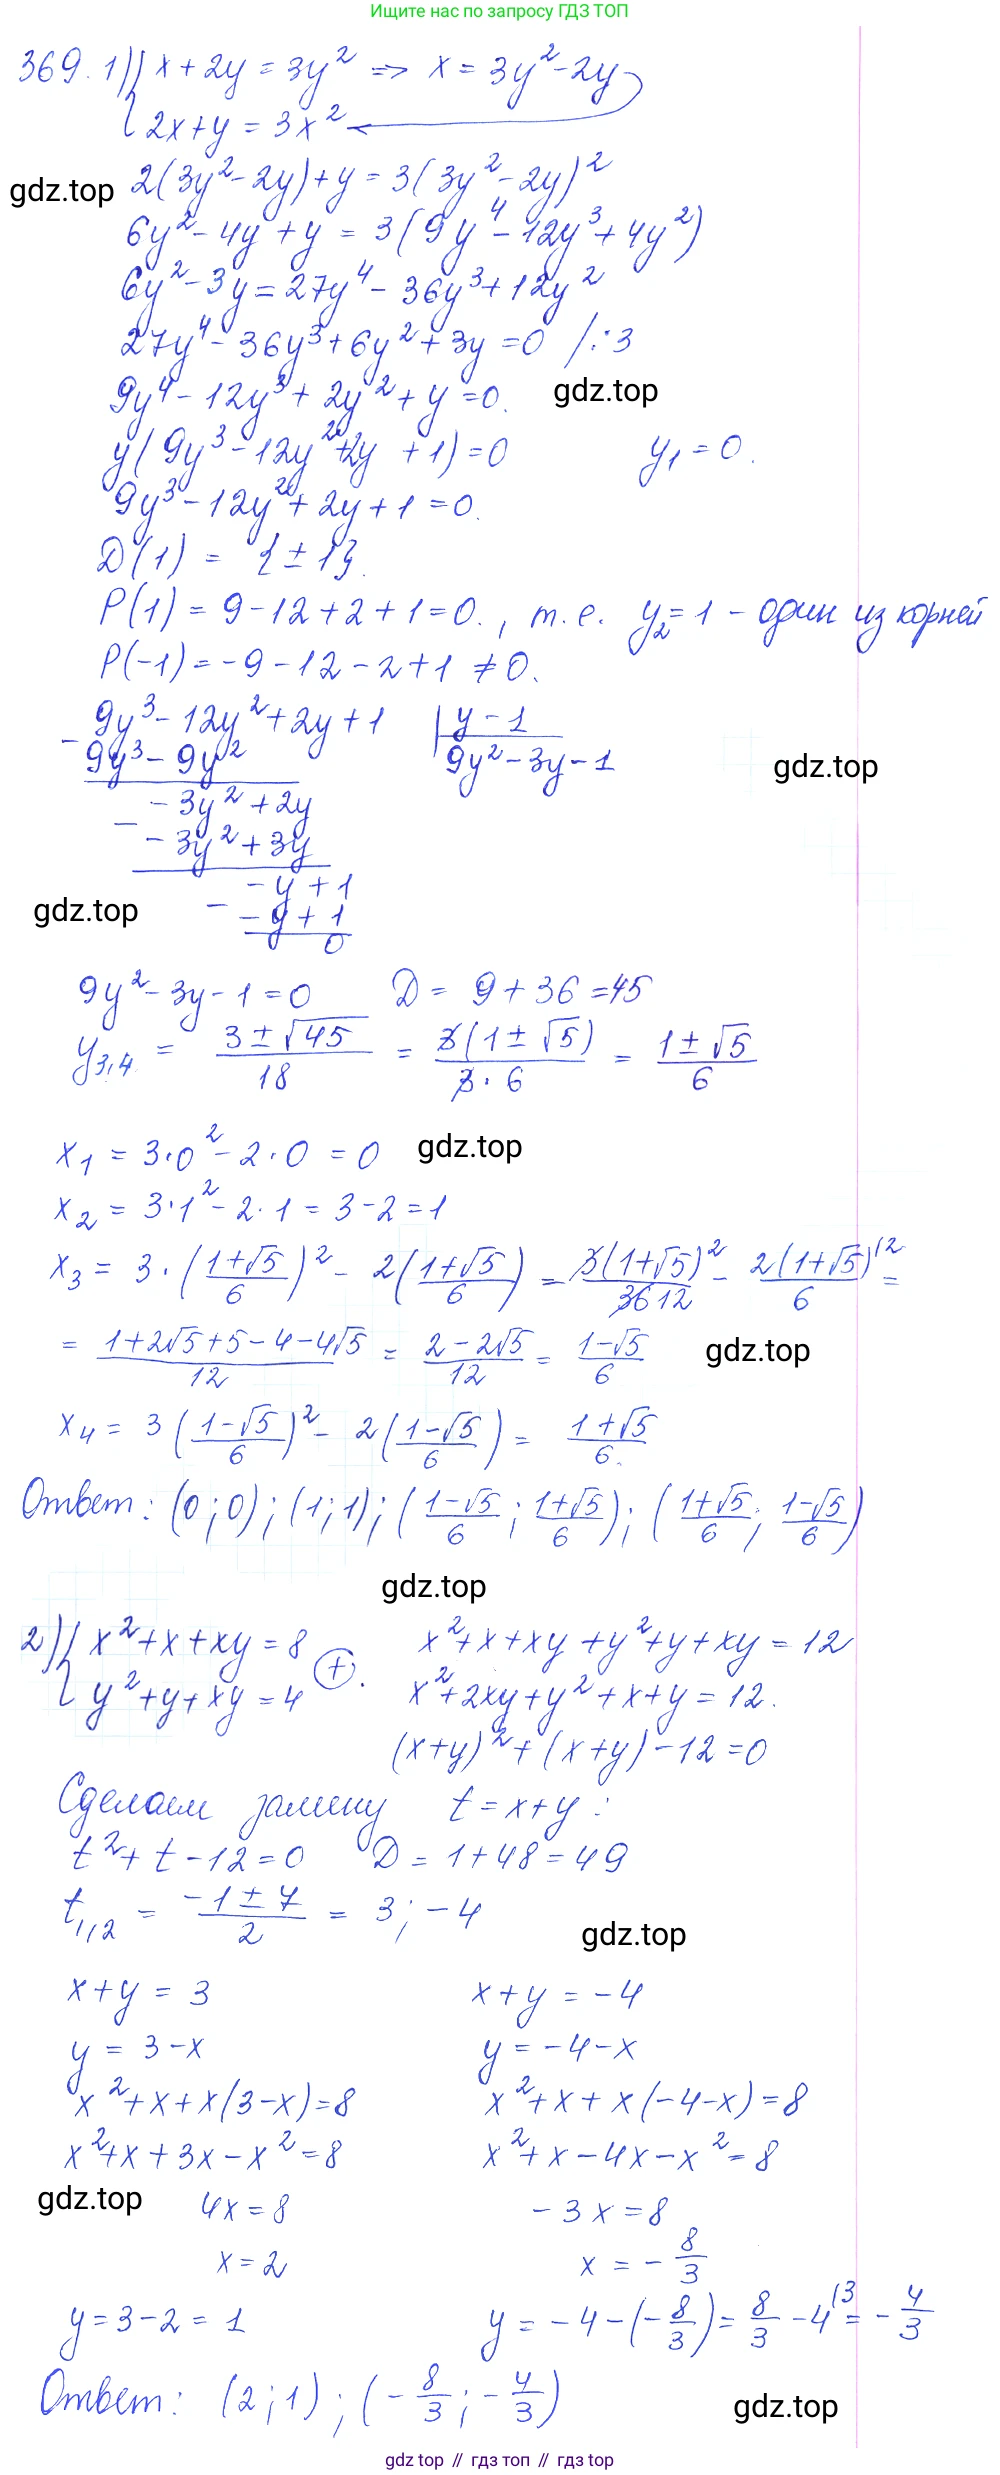 Ищите нас по запросу ГДЗ ТОП
369. 1) { x + 2y = 3y² => x = 3y² - 2y
2x + y = 3x²
gdz.top
2(3y² - 2y) + y = 3(3y² - 2y)²
6y² - 4y + y = 3(9y⁴ - 12y³ + 4y²)
6y² - 3y = 27y⁴ - 36y³ + 12y²
27y⁴ - 36y³ + 6y² + 3y = 0 /:3
9y⁴ - 12y³ + 2y² + y = 0.
gdz.top
y(9y³ - 12y² + 2y + 1) = 0 y₁ = 0.
9y³ - 12y² + 2y + 1 = 0.
D(1) = {± 1}.
P(1) = 9 - 12 + 2 + 1 = 0., т.е. y₂ = 1 - один из корней
P(-1) = -9 - 12 - 2 + 1 ≠ 0.
- 9y³ - 12y² + 2y + 1 | y - 1
9y³ - 9y² 9y² - 3y - 1
gdz.top
- - 3y² + 2y
- 3y² + 3y
- - y + 1
gdz.top
- y + 1
0
9y² - 3y - 1 = 0 D = 9 + 36 = 45
y₃,₄ = (3 ± √45)/18 = 3(1 ± √5)/(3 · 6) = (1 ± √5)/6
x₁ = 3·0² - 2·0 = 0
gdz.top
x₂ = 3·1² - 2·1 = 3 - 2 = 1
x₃ = 3·((1+√5)/6)² - 2((1+√5)/6) = 3(1+√5)²/36 12 - 2(1+√5)/6 ^(2 =
= (1 + 2√5 + 5 - 4 - 4√5)/12 = (2 - 2√5)/12 = (1-√5)/6
gdz.top
x₄ = 3((1-√5)/6)² - 2((1-√5)/6) = (1+√5)/6.
Ответ: (0; 0); (1; 1); ((1-√5)/6; (1+√5)/6); ((1+√5)/6; (1-√5)/6)
gdz.top
2) { x² + x + xy = 8 (+). x² + x + xy + y² + y + xy = 12
y² + y + xy = 4 x² + 2xy + y² + x + y = 12.
(x+y)² + (x+y) - 12 = 0
Сделаем замену t = x + y :
t² + t - 12 = 0 D = 1 + 48 = 49
t₁,₂ = (-1 ± 7)/2 = 3; -4
gdz.top
x + y = 3 x + y = -4
y = 3 - x y = -4 - x
x² + x + x(3 - x) = 8 x² + x + x(-4 - x) = 8
x² + x + 3x - x² = 8 x² + x - 4x - x² = 8
gdz.top
4x = 8 - 3x = 8
x = 2 x = - 8/3
y = 3 - 2 = 1 y = -4 - (-8/3) = 8/3 - 4 ^(3 = - 4/3
Ответ: (2; 1); (-8/3; -4/3)
gdz.top
gdz top // гдз топ // гдз top